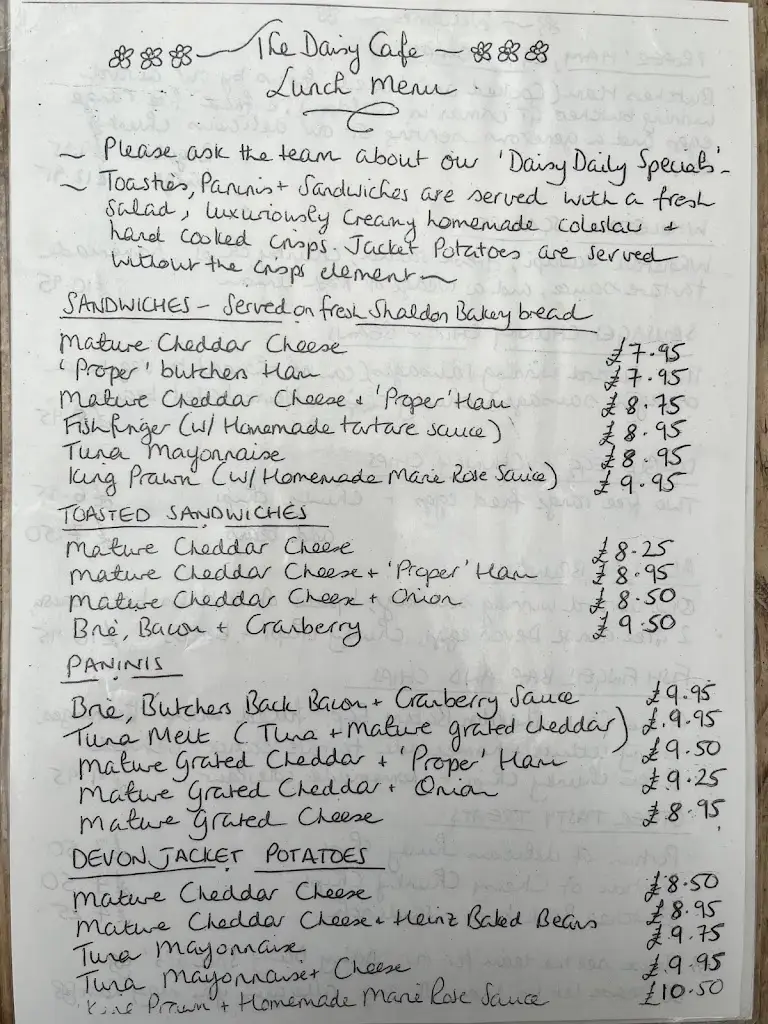 The Daisy Cafe
Lunch Menu
~ Please ask the team about our 'Daisy Daily Specials' -
~ Toasties, Paninis + Sandwiches are served with a fresh
salad, luxuriously creamy homemade coleslaw +
hand cooked crisps. Jacket Potatoes are served
without the crisps element ~
SANDWICHES - Served on fresh Shaldon Bakey bread
Mature Cheddar Cheese £7.95
'Proper' butchers Ham £7.95
Mature Cheddar Cheese + 'Proper' Ham £8.75
Fishfinger (w/ Homemade tartare sauce) £8.95
Tuna Mayonnaise £8.95
King Prawn (w/ Homemade Marie Rose Sauce) £9.95
TOASTED SANDWICHES
Mature Cheddar Cheese £8.25
Mature Cheddar Cheese + 'Proper' Ham £8.95
Mature Cheddar Cheese + Onion £8.50
Brie, Bacon + Cranberry £9.50
PANINIS
Brie, Butchers Back Bacon + Cranberry Sauce £9.95
Tuna Melt (Tuna + Mature grated cheddar) £9.95
Mature Grated Cheddar + 'Proper' Ham £9.50
Mature Grated Cheddar + Onion £9.25
Mature Grated Cheese £8.95
DEVON JACKET POTATOES
Mature Cheddar Cheese £8.50
Mature Cheddar Cheese + Heinz Baked Beans £8.95
Tuna Mayonnaise £9.75
Tuna Mayonnaise + Cheese £9.95
King Prawn + Homemade Marie Rose Sauce £10.50